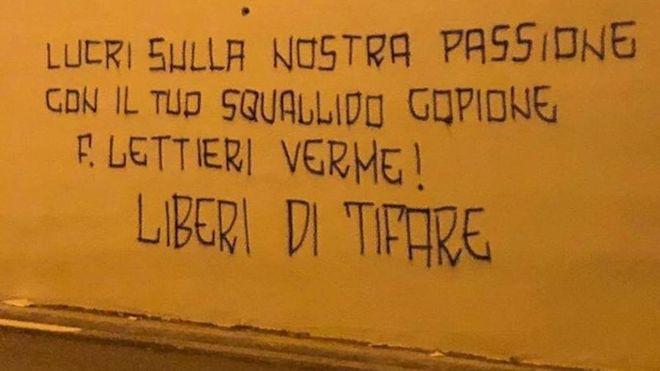 LUCRI SULLA NOSTRA PASSIONE
CON IL TUO SQUALLIDO COPIONE
F. LETTIERI VERME!
LIBERI DI TIFARE